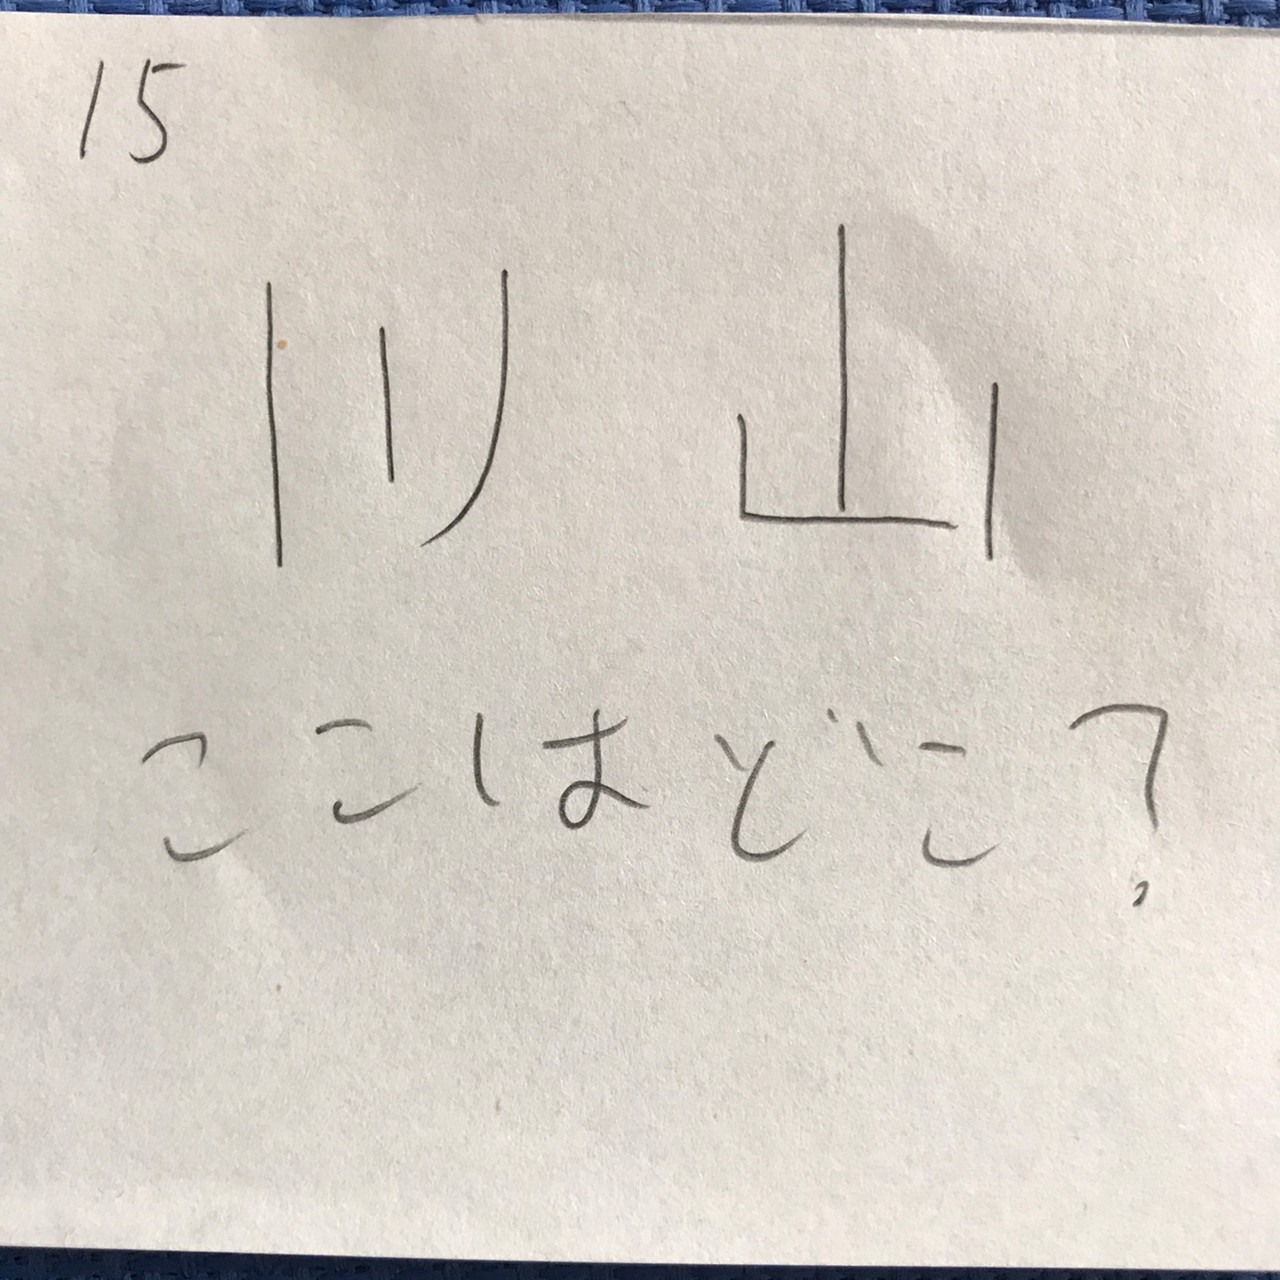 15
川 山
ここはどこ?